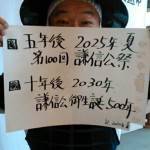 五年後 2025年 夏
第100回 謙信公祭
十年後 2030年
謙信公 御生誕 500年